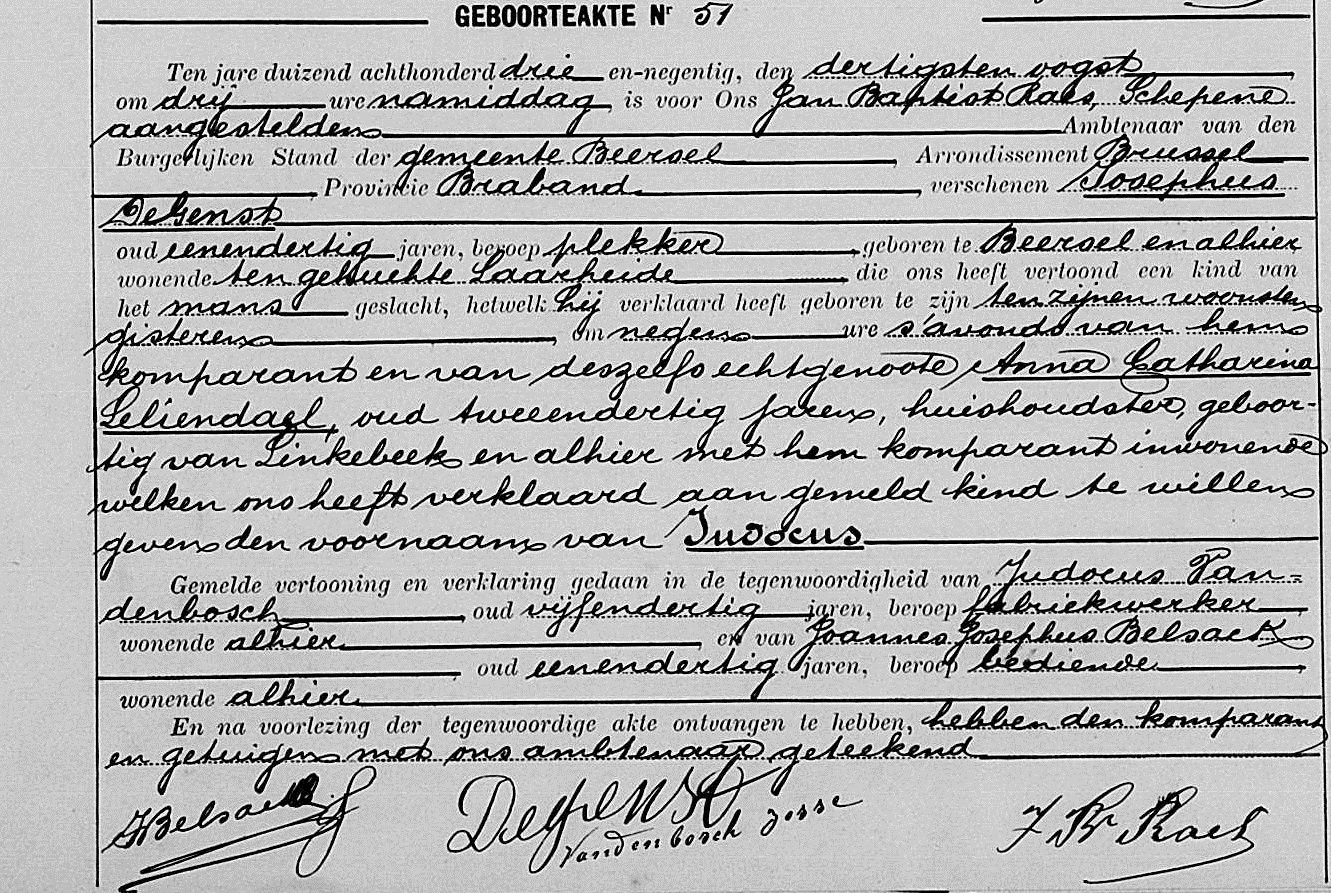 GEBOORTEAKTE Nr 51
Ten jare duizend achthonderd drie en-negentig, den dertigsten oogst
om drij ure namiddag, is voor Ons Jan Baptist Raes, Schepene
aangestelden Ambtenaar van den
Burgerlijken Stand der gemeente Beersel, Arrondissement Brussel
, Provincie Braband, verschenen Josephus
DeGenst
oud eenendertig jaren, beroep plekker, geboren te Beersel en alhier
wonende ten gehuchte Laarheide, die ons heeft vertoond een kind van
het mans geslacht, hetwelk hij verklaard heeft geboren te zijn ten zijnen woonsten
gisteren, om negen ure s'avonds van hem
komparant en van deszelfs echtgenoote, Anna Catharina
Leliendael, oud tweeendertig jaren, huishoudster, geboor-
tig van Linkebeek en alhier met hem komparant inwonende
welken ons heeft verklaard aan gemeld kind te willen
geven den voornaam van Judocus
Gemelde vertooning en verklaring gedaan in de tegenwoordigheid van Judocus Van-
denbosch, oud vijfendertig jaren, beroep fabriekwerker,
wonende alhier, en van Joannes Josephus Belsack
, oud eenendertig jaren, beroep bediende,
wonende alhier.
En na voorlezing der tegenwoordige akte ontvangen te hebben, hebben den komparant
en getuigen met ons ambtenaar geteekend
JBelsack DeGenst J Bt Raes
Vandenbosch Josse